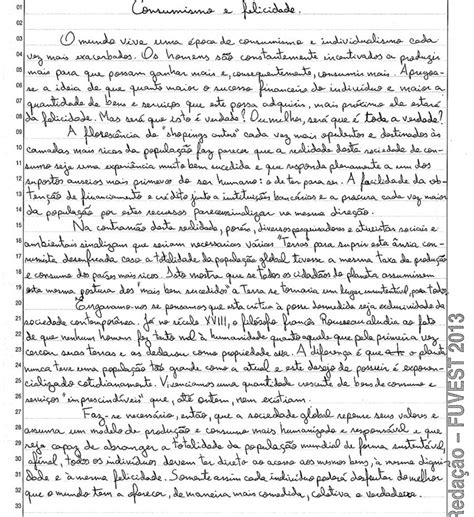 Consumismo e felicidade.
O mundo vive uma época de consumismo e individualismo cada
vez mais exacerbados. Os homens são constantemente incentivados a produzir
mais para que possam ganhar mais e, consequentemente, consumir mais. Apregoa-
se a ideia de que quanto maior o sucesso financeiro do indivíduo e maior a
quantidade de bens e serviços que este possa adquirir, mais próximo ele estará
da felicidade. Mas será que isto é verdade? Ou melhor, será que é toda a verdade?
A florescência de "shoppings centers" cada vez mais opulentos e destinados às
camadas mais ricas da população faz parecer que a realidade desta sociedade de con-
sumo seja uma experiência muito bem sucedida e que responda plenamente a um dos
supostos anseios mais primevos do ser humano: o de ter para ser. A facilidade da ob-
tenção de financiamento e crédito junto a instituições bancárias e a procura cada vez maior
da população por estes recursos parece sinalizar na mesma direção.
Na contramão desta realidade, porém, diversos pesquisadores e ativistas sociais e
ambientais sinalizam que seriam necessárias várias "Terras" para suprir esta ânsia con-
sumista desenfreada caso a totalidade da população global tivesse a mesma taxa de produção
e consumo dos países mais ricos. Isto mostra que se todos os cidadãos do planeta assumissem
esta mesma postura dos "mais bem sucedidos" a Terra se tornaria um lugar insustentável, para todos.
Enganamo-nos se pensamos que esta crítica à posse desmedida seja exclusividade da
sociedade contemporânea. Já no século XVIII, o filósofo francês Rousseau aludia ao fato
de que nenhum homem fez tanto mal à humanidade quanto aquele que pela primeira vez
cercou suas terras e as declarou como propriedade sua. A diferença é que o planeta
nunca teve uma população tão grande como a atual e este desejo de possuir é exponen-
cializado cotidianamente. Vivenciamos uma quantidade crescente de bens de consumo e
serviços "imprescindíveis" que, até ontem, nem existiam.
Faz-se necessário, então, que a sociedade global repense seus valores e
assuma um modelo de produção e consumo mais humanizado e responsável e que
seja capaz de abranger a totalidade da população mundial de forma sustentável,
afinal, todos os indivíduos devem ter direito ao acesso aos mesmos bens, à mesma digni-
dade e à mesma felicidade. Somente assim cada indivíduo poderá desfrutar do melhor
que o mundo tem a oferecer, de maneira mais comedida, coletiva e verdadeira.
Redação – FUVEST 2013